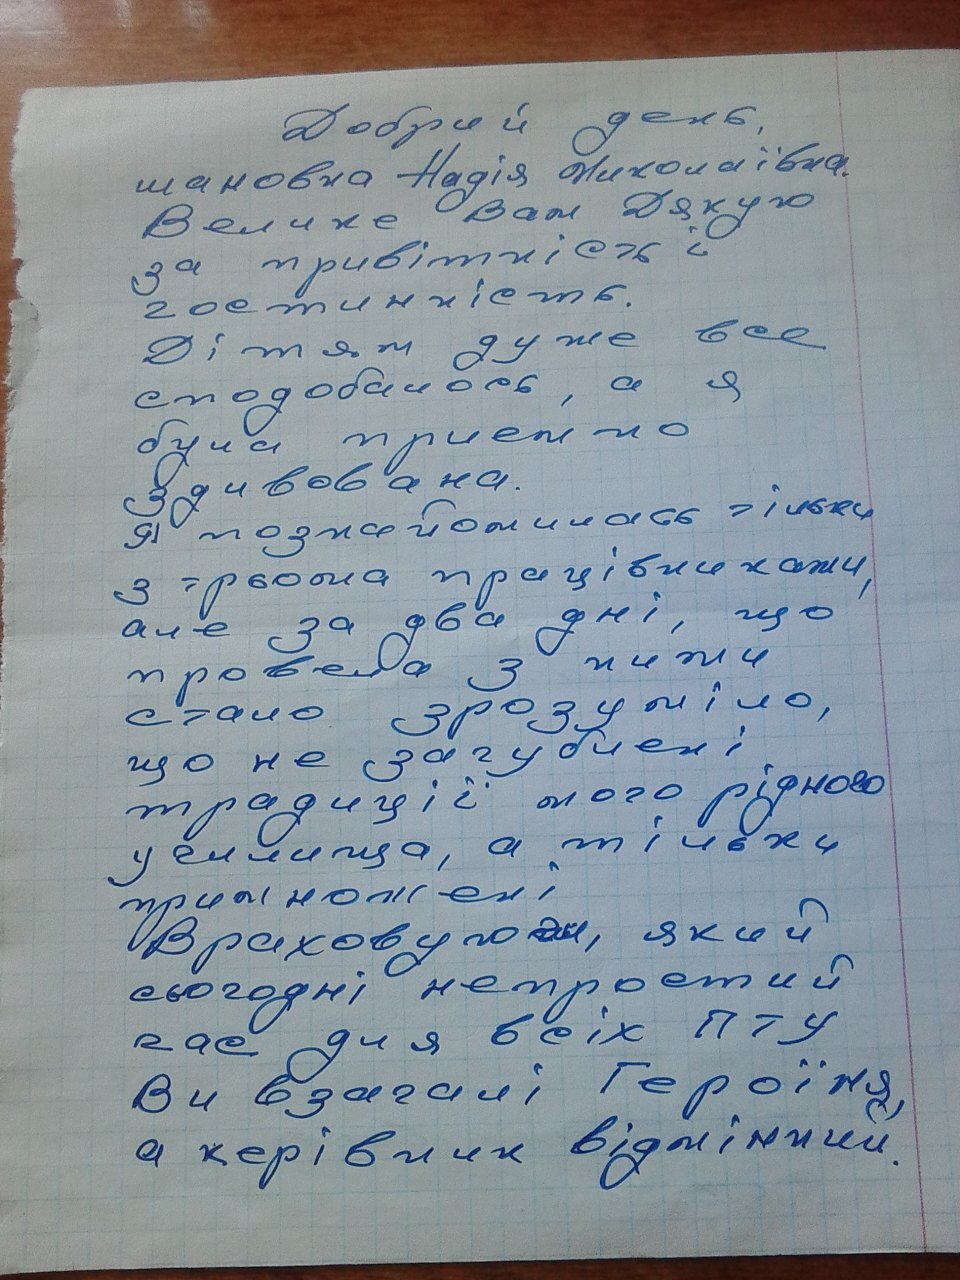 Добрий день,
шановна Надія Миколаївна.
Велике Вам Дякую
за привітність і
гостинність.
Дітям дуже все
сподобалось, а я
була приємно
здивована.
Я познайомилась тільки
з трьома працівниками,
але за два дні, що
провела з ними
стало зрозуміло,
що не загублені
традиції мого рідного
училища, а тільки
примножені
Враховуючи, який
сьогодні непростий
час для всіх ПТУ
Ви взагалі Героїня,
а керівник відмінний.